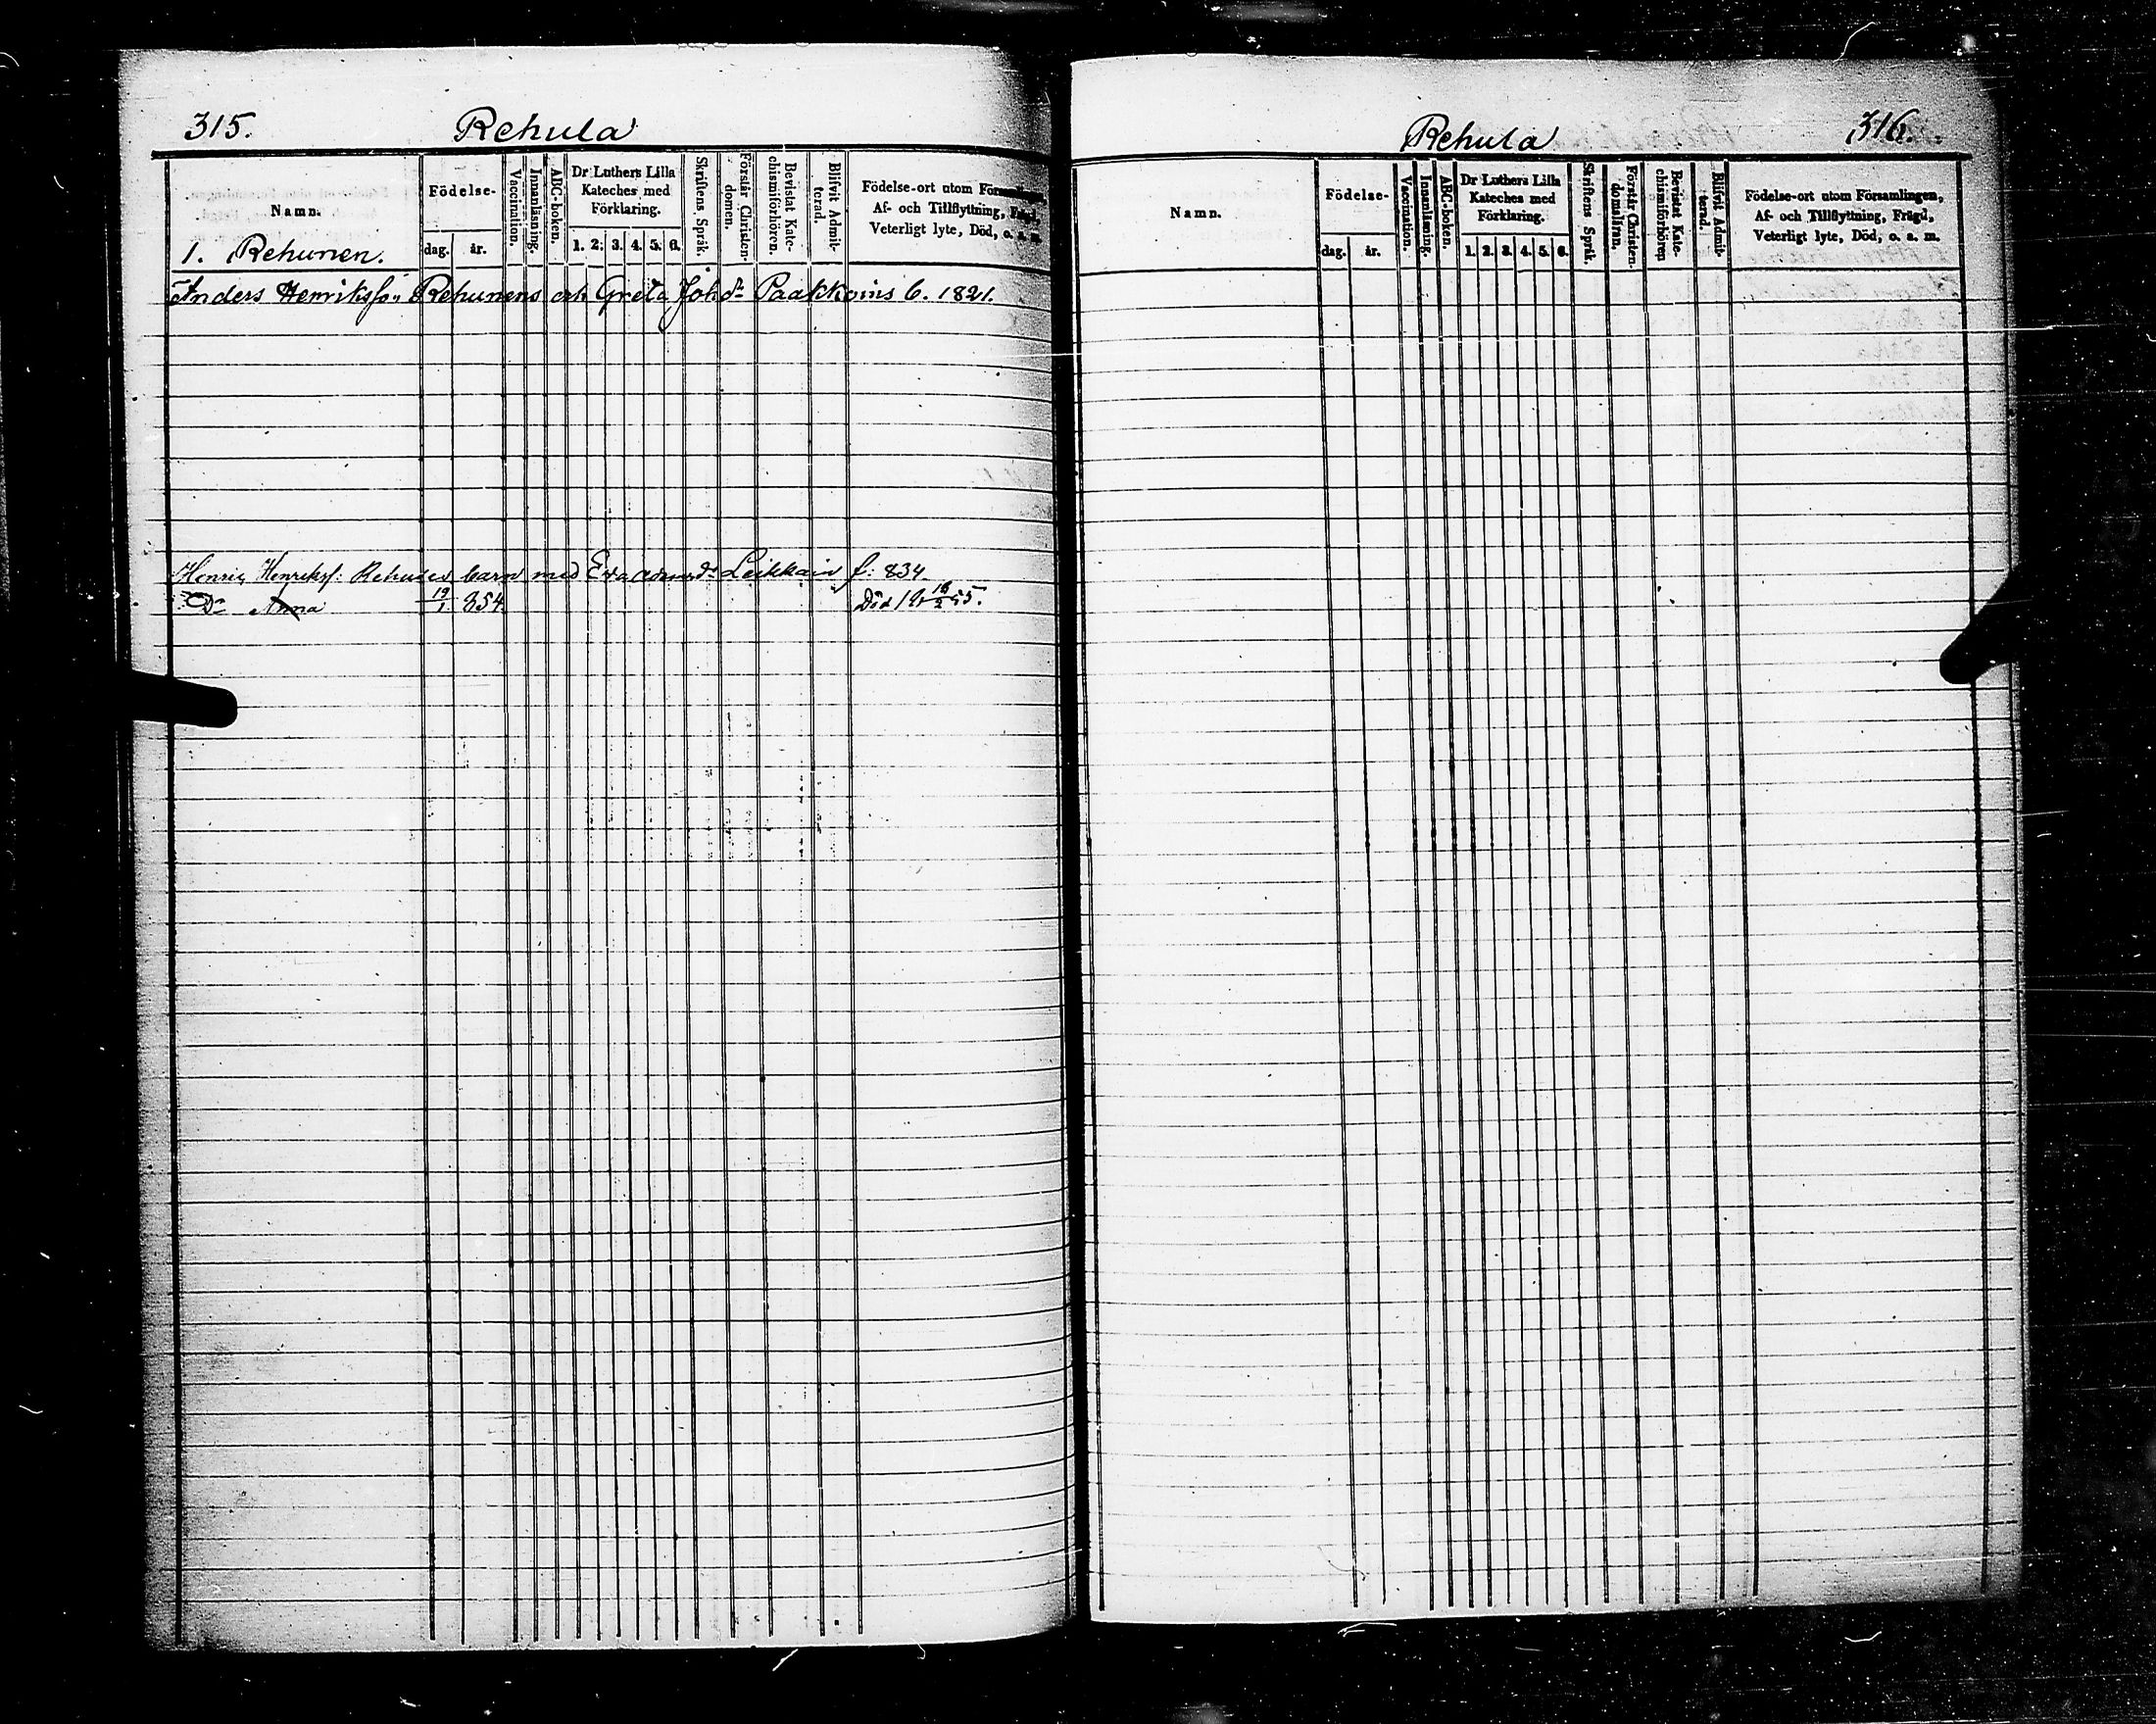 315.
Rehula
Namn.
Födelse-
dag.
år.
Vaccination.
Innanläsning.
ABC-boken.
Dr Luthers Lilla
Kateches med
Förklaring.
1. 2. 3. 4. 5. 6.
Skriftens Språk.
Förstår Christen-
domen.
Bevistat Kate-
chismiförhören.
Blifvit Admit-
terad.
Födelse-ort utom Församlingen,
Af- och Tillflyttning, Frägd,
Veterligt lyte, Död, o. a. m.
1. Rehunen.
Anders Henrikss: Rehunens och Greta Joh dr Paakkoins b. 1821.
Henric Henrikss: barn med Eva Leikkain f: 834.
Dr Anna 19/1 854 Död 55.
Rehula
316.
Namn.
Födelse-
dag.
år.
Vaccination.
Innanläsning.
ABC-boken.
Dr Luthers Lilla
Kateches med
Förklaring.
1. 2. 3. 4. 5. 6.
Skriftens Språk.
Förstår Christen-
domsliran.
Bevistat Kate-
chismiförhören
Blifvit Admit-
terad.
Födelse-ort utom Församlingen,
Af- och Tillflyttning, Frägd,
Veterligt lyte, Död, o. a. m.